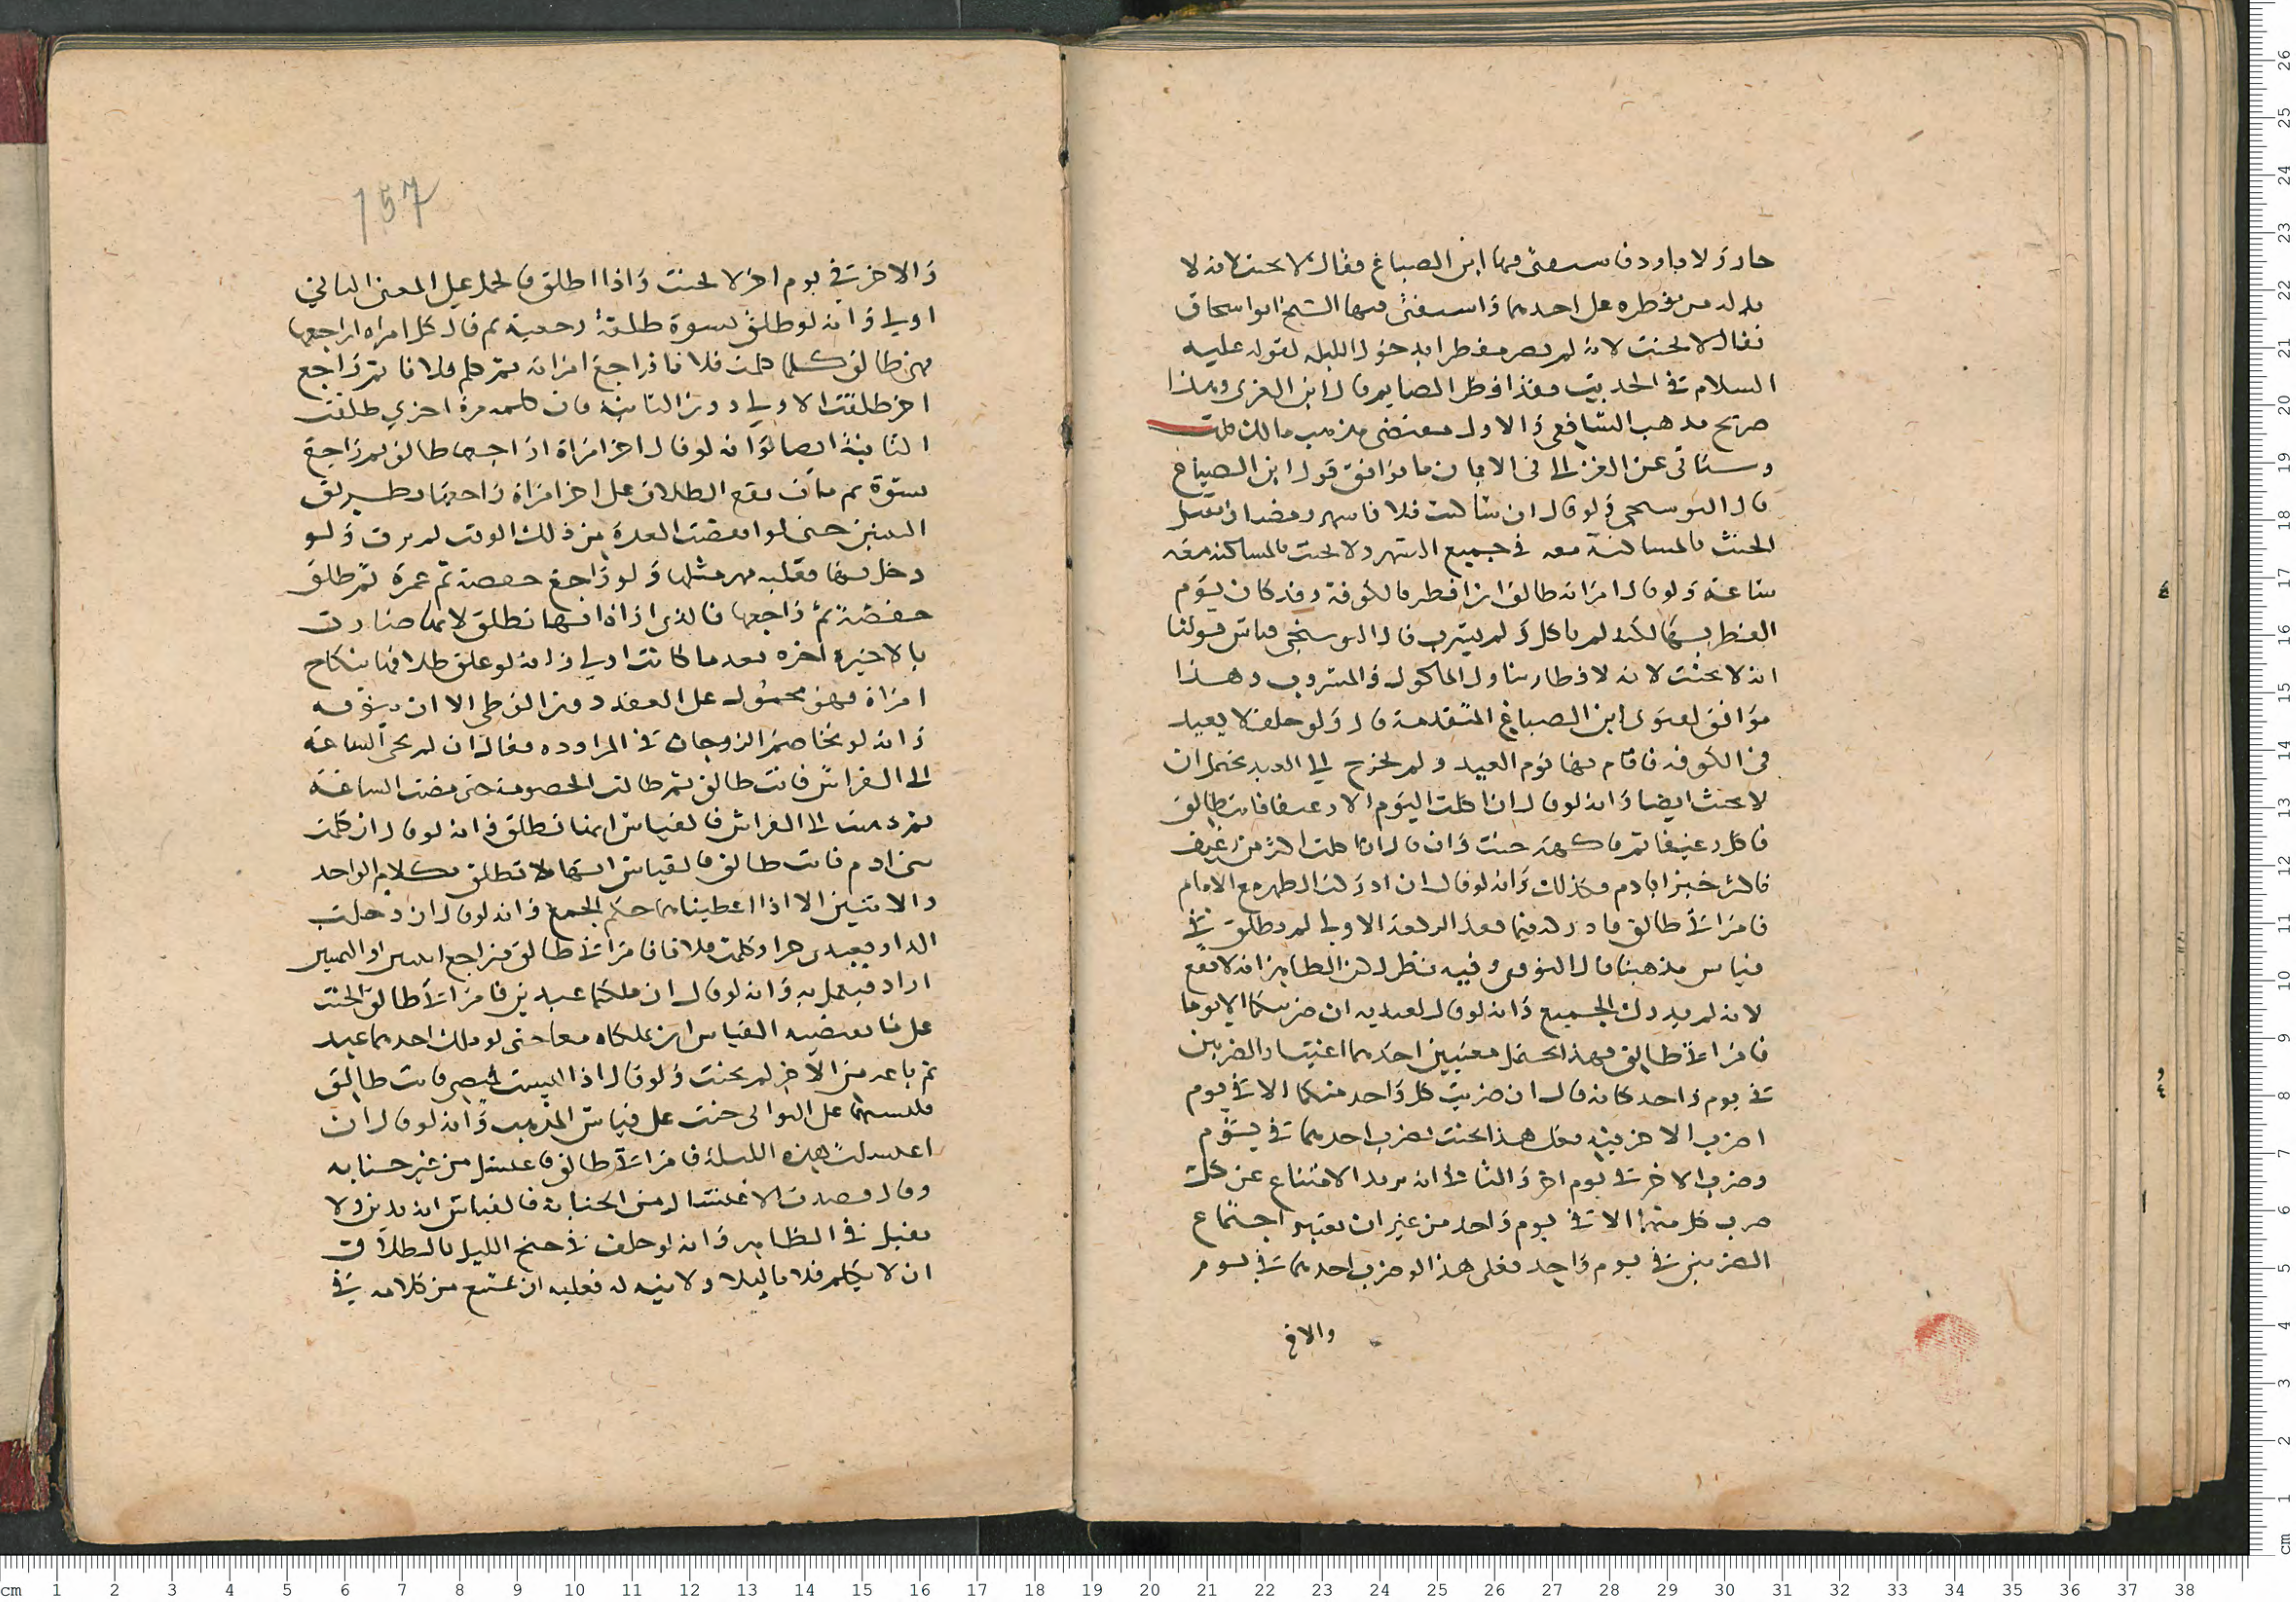 حار ولا بارد فاستفتى فيها ابن الصباغ فقال لا يحنث لانه لا
بد له من فطره على احدهما واستفتى فيها الشيخ ابو اسحاق
فقال لا يحنث لانه لم يصر مفطرا بدخول الليل لقوله عليه
السلام في الحديث وقد افطر الصايم قال ابن العزى وهذا
صريح مذهب الشافعي والاول مقتضى مذهب مالك قلت
وسياتي عن الغزالي في الايمان ما يوافق قول ابن الصباغ
قال البوسنجي ولو قال ان ساكنت فلانا شهر رمضان تعلق
الحنث بالمساكنة معه في جميع الشهر ولا يحنث بالمساكنة معه
ساعة ولو قال امراته طالق ان افطر بالكوفة وقد كان يوم
الفطر بها لكنه لم ياكل ولم يشرب قال البوسنجي قياس قولنا
انه لا يحنث لان الافطار تناول الماكول والمشروب وهذا
موافق لفتوى ابن الصباغ المتقدمة قال ولو حلف لا يعيد
في الكوفة فاقام بها يوم العيد ولم يخرج الى العيد يحتمل ان
لا يحنث ايضا وانه لو قال ان اكلت اليوم الا رغيفا فانت طالق
فاكل رغيفا ثم فاكهة حنث وان قال ان اكلت اكثر من رغيف
فاكثر خبزا بادم فكذلك وانه لو قال ان ادركت الظهر مع الامام
فامراتي طالق فادركه فيما بعد الركعة الاولى لم تطلق في
قياس مذهبنا قال النووي وفيه نظر لان الظاهر انه لا يقع
لانه لم يدرك الجميع وانه لو قال لعبديه ان ضربتكما الا يوما
فامراتي طالق فهذا يحتمل معنيين احدهما اعتبار الضربين
في يوم واحد كانه قال ان ضربت كل واحد منكما الا في يوم
اضرب الاخر فيه فعلى هذا يحنث بضرب احدهما في يوم
وضرب الاخر في يوم اخر والثاني انه يريد الامتناع عن
ضرب كل منهما الا في يوم واحد من غير ان يعتبر اجتماع
الضربين في يوم واحد فعلى هذا لو ضرب احدهما في يوم
والاخ
157
والاخر في يوم اخر لا يحنث واذا اطلق فالحمل على المعنى الثاني
اولى وانه لو طلق نسوة طلقة رجعية ثم قال كل امراة اراجعها
فهي طالق كلما كلمت فلانا فراجع امراة ثم كلم فلانا ثم راجع
اخرى طلقت الاولى دون الثانية فان كلمه مرة اخرى طلقت
الثانية ايضا وانه لو قال اخر امراة اراجعها طالق ثم راجع
نسوة ثم مات يقع الطلاق على اخر امراة راجعها بطريق
التبين حتى لو انقضت العدة من ذلك الوقت لم ترث ولو
دخل بها فعليه مهر مثلها ولو راجع حفصة ثم عمرة ثم طلق
حفصة ثم راجعها فالذي اراه انها تطلق لانها صارت
بالاخيرة اخره بعد ما كانت اولى وانه لو علق طلاقها بنكاح
امراة فهو محمول على العقد دون الوطي الا ان ينويه
وانه لو تخاصم الزوجان في المراوده فقال ان لم تجي الساعة
الى الفراش فانت طالق ثم طالت الخصومة حتى مضت الساعة
ثم ذهبت الى الفراش فالقياس انها تطلق وانه لو قال ان كلمت
بني ادم فانت طالق فالقياس انها لا تطلق بكلام الواحد
والاثنين الا اذا اعطيناهما حكم الجمع وانه لو قال ان دخلت
الدار فعبدي حر او كلمت فلانا فامراتي طالق فيراجع ايهما
اراد فيعمل به وانه لو قال ان ملكتما عبدين فامراتي طالق الحنث
على ما يقتضيه القياس ان يملكاه معا حتى لو ملك احدهما عبد
ثم باعه من الاخر لم يحنث ولو قال اذا لبست قميصي فانت طالق
فلبستهما على التوالي حنث على قياس المذهب وانه لو قال ان
اغتسلت هذه الليلة فامراتي طالق فاغتسل من غير جنابة
وقال قصدت الاغتسال من الجنابة فالقياس انه يدين ولا
يقبل في الظاهر وانه لو حلف في جنح الليل بالطلاق
ان لا يكلم فلانا ليلا ولا نية له فعليه ان يمتنع من كلامه في